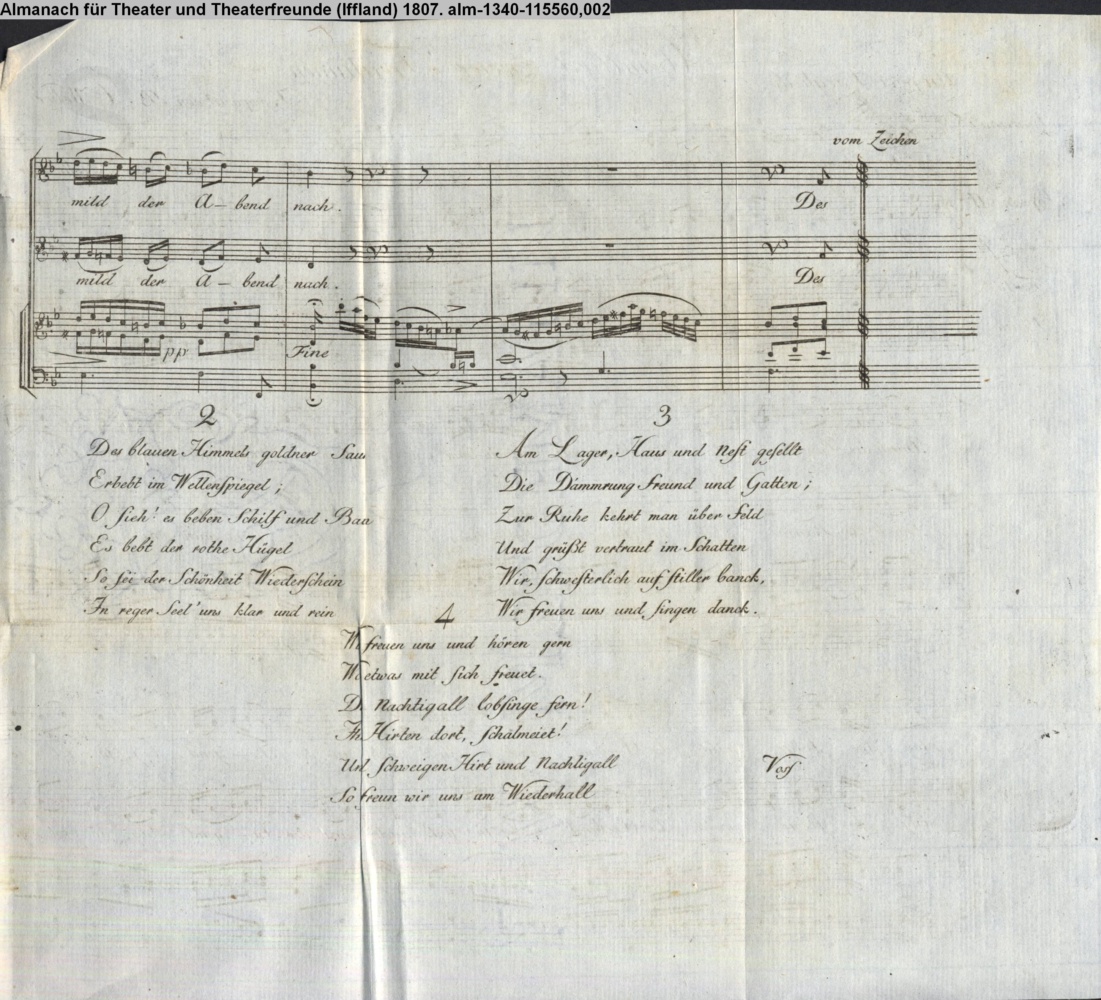 Almanach für Theater und Theaterfreunde (Iffland) 1807. alm-1340-115560,002
vom Zeichen
mild der A - bend nach.
Des
mild der A - bend nach.
Des
pp
Fine
2
Des blauen Himmels goldner Sau
Erbebt im Wellenſpiegel;
O ſieh' es beben Schilf und Bau
Es bebt der rothe Hügel
So ſei der Schönheit Wiederſchein
In reger Seel' uns klar und rein
3
Am Lager, Haus und Neſt geſellt
Die Dämmrung Freund und Gatten;
Zur Ruhe kehrt man über Feld
Und grüßt vertraut im Schatten
Wir, ſchweſterlich auf ſtiller banck,
Wir freuen uns und ſingen danck.
4
W freuen uns und hören gern
W etwas mit ſich freuet.
D Nachtigall lobſinge fern!
Ih Hirten dort, ſchalmeiet!
Un ſchweigen Hirt und Nachtigall
So freun wir uns am Wiederhall
Voſs